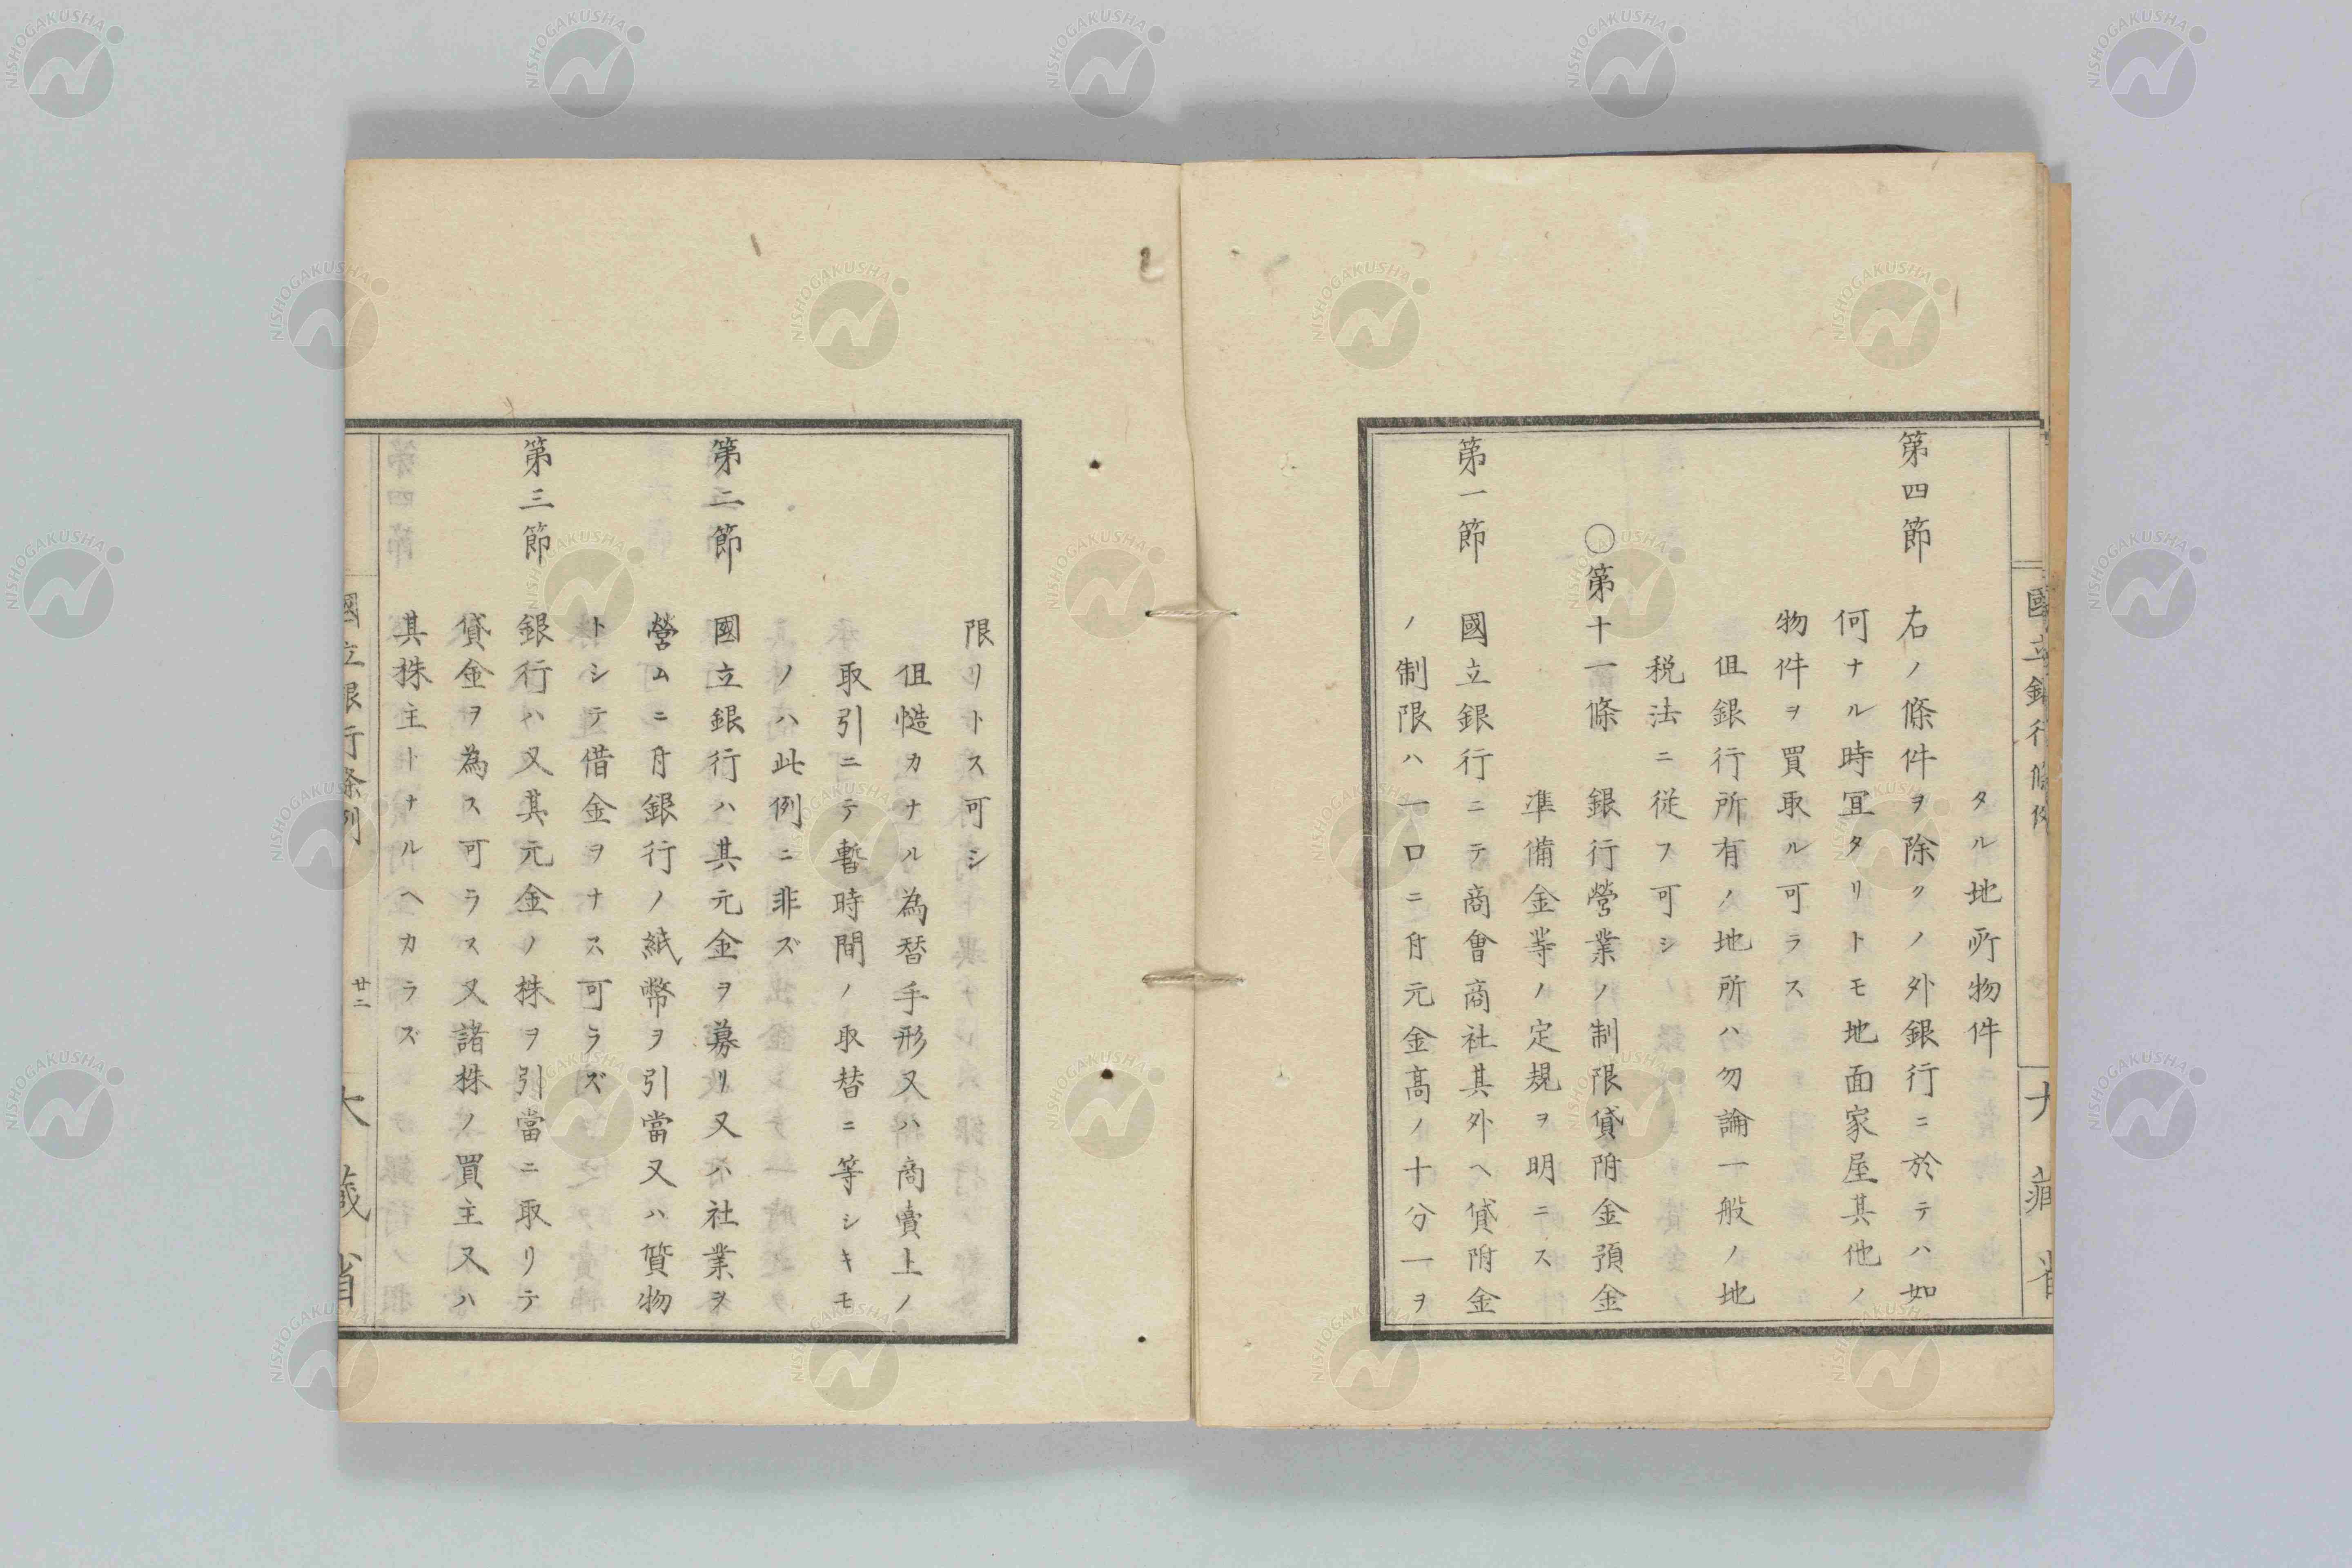 タル地所物件
第四節 右ノ條件ヲ除クノ外銀行ニ於テハ如
何ナル時冝タリトモ地面家屋其他ノ
物件ヲ買取ル可ラス
伹銀行所有ノ地所ハ勿論一般ノ地
税法ニ従フ可シ
○第十一條 銀行營業ノ制限貸附金預金
準備金等ノ定規ヲ明ニス
第一節 國立銀行ニテ商會商社其外ヘ貸附金
ノ制限ハ一口ニ付元金髙ノ十分一ヲ
限リトス可シ
伹慥カナル為替手形又ハ商賣上ノ
取引ニテ暫時間ノ取替ニ等シキモ
ノハ此例ニ非ズ
第二節 國立銀行ハ其元金ヲ募リ又ハ社業ヲ
營ムニ付銀行ノ紙幣ヲ引當又ハ質物
トシテ借金ヲナス可ラズ
第三節 銀行ハ又其元金ノ株ヲ引當ニ取リテ
貸金ヲ為ス可ラス又諸株ノ買主又ハ
其株主トナルヘカラズ
國立銀行條例 廿二 大藏省
NISHOGAKUSHA